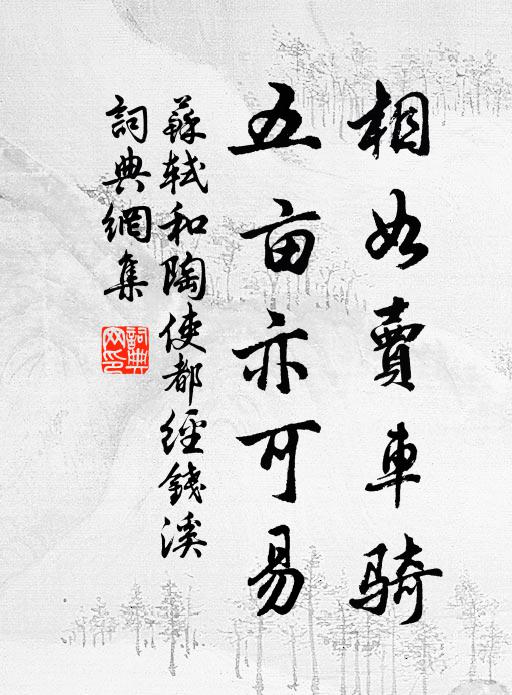 相如賣車騎
五亩亦可易
蘇軾和陶使都經錢溪
詞典網集
詞典網印